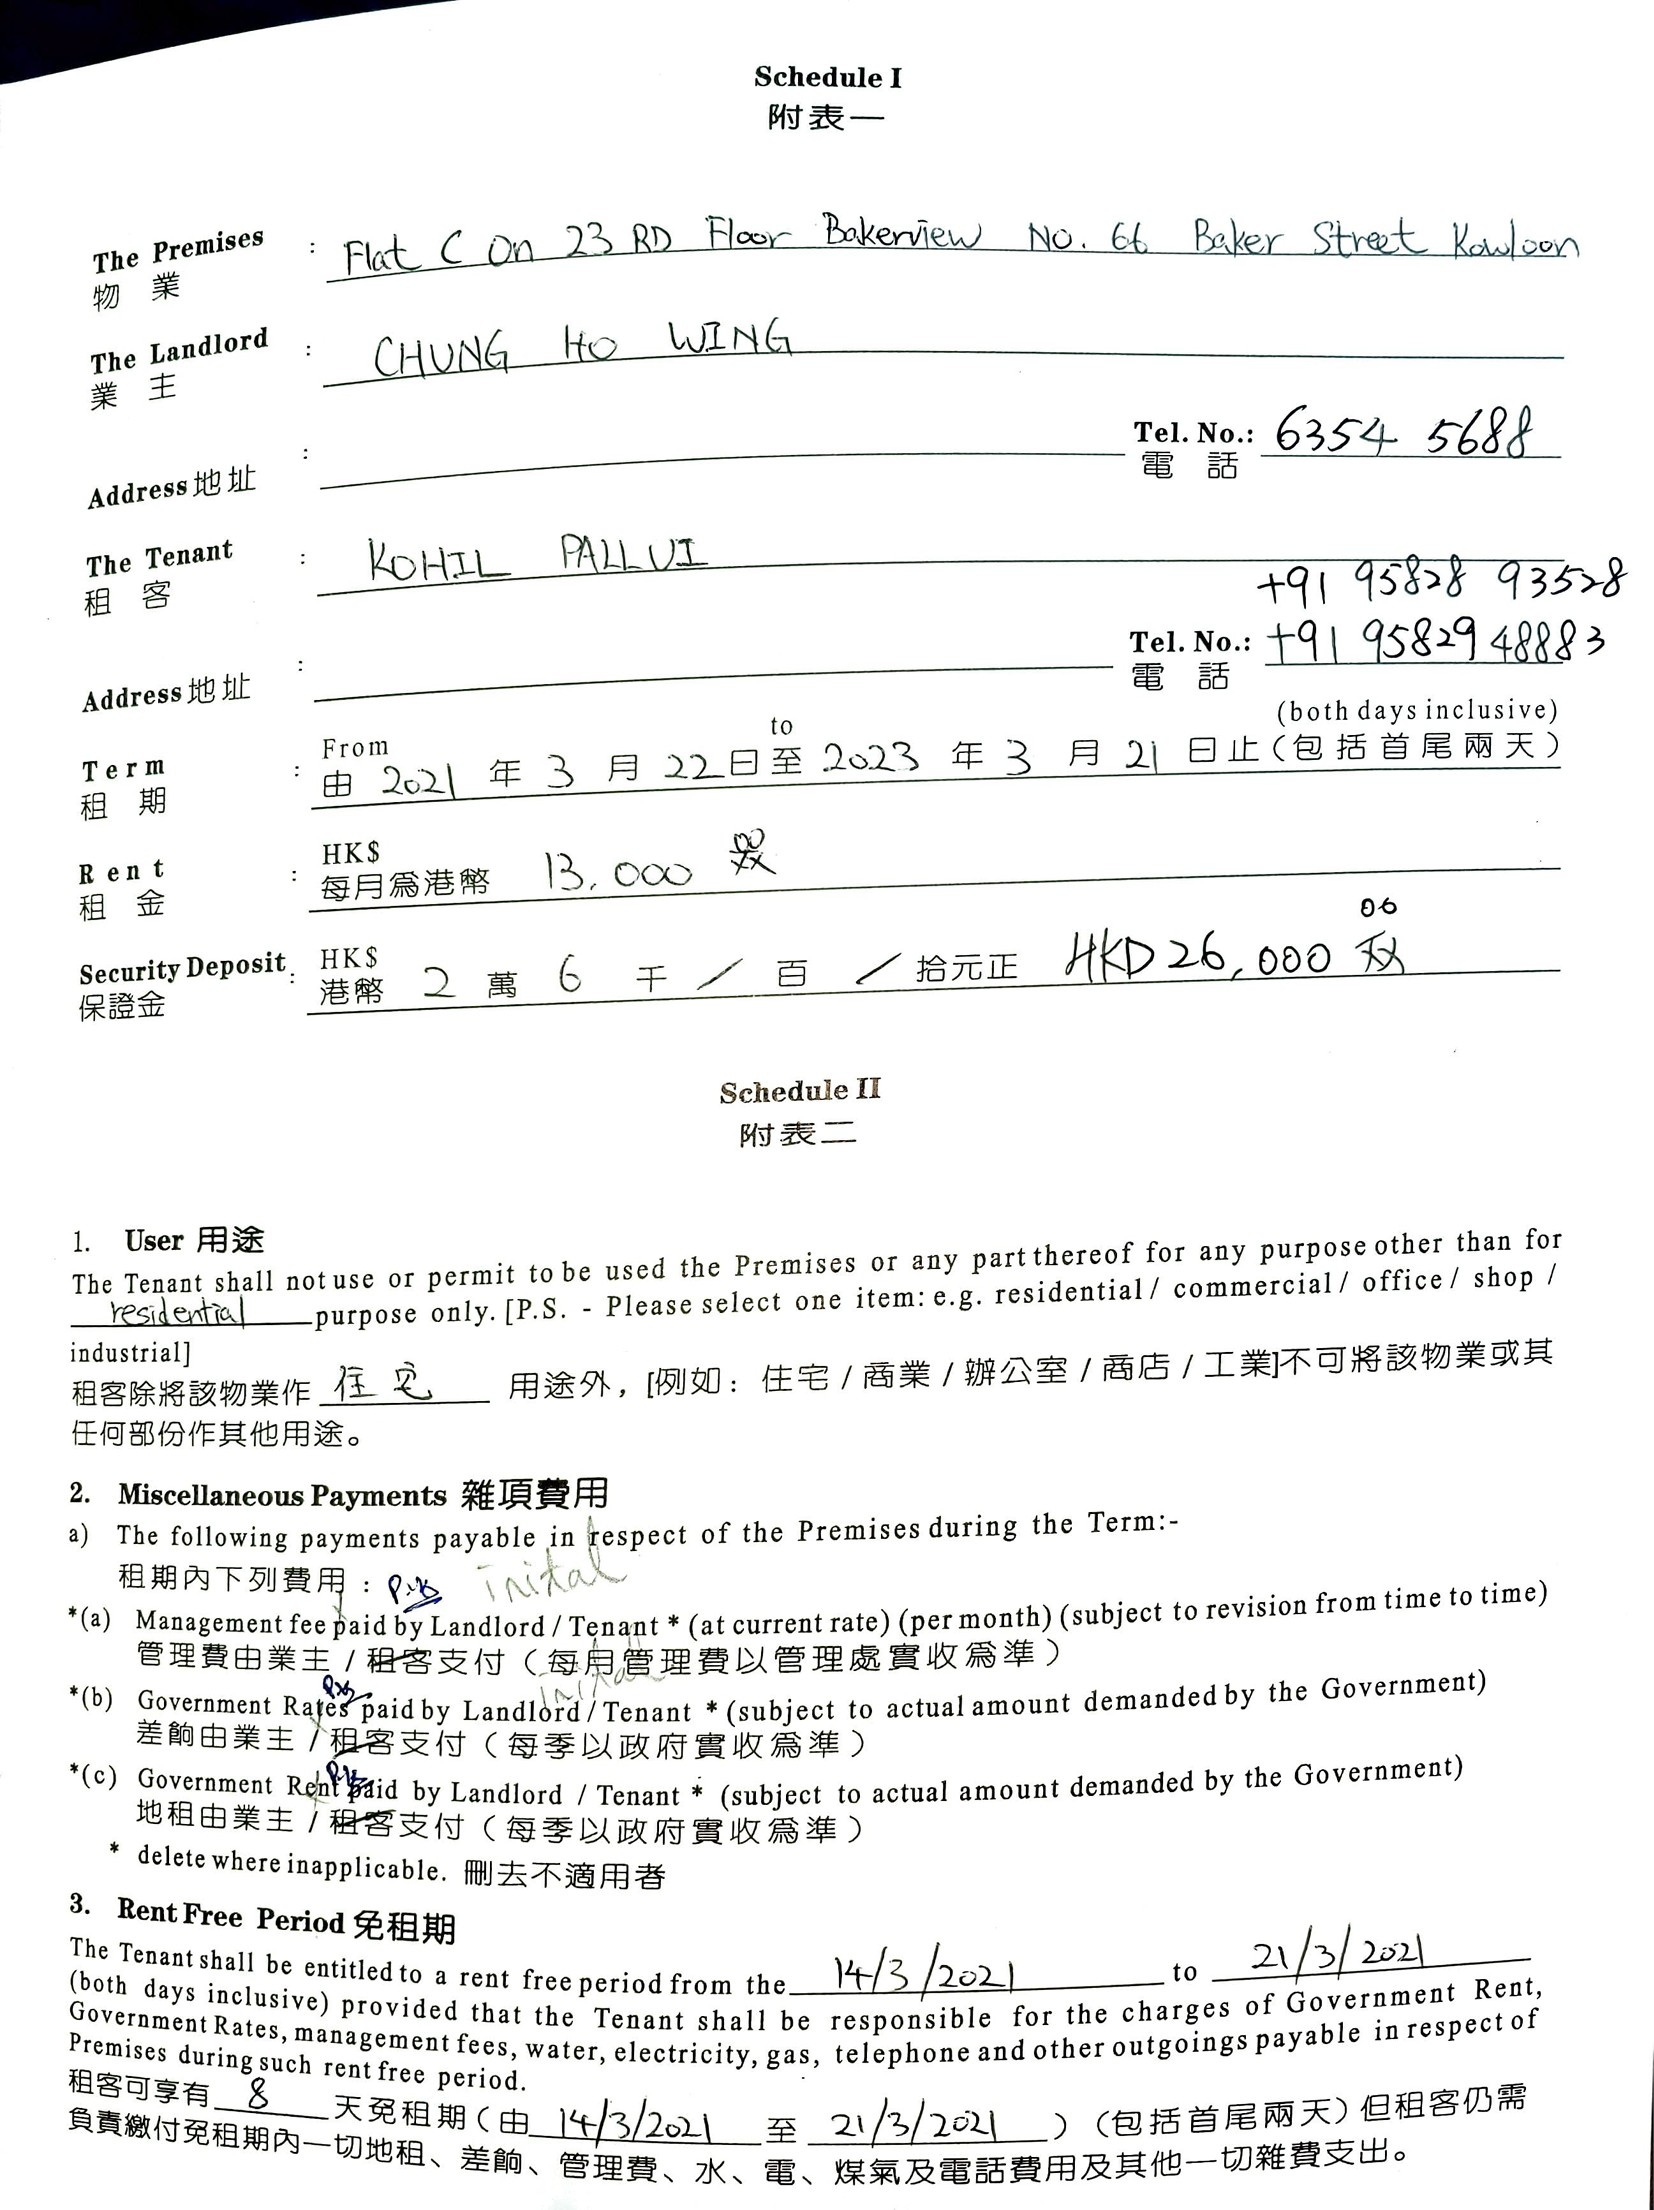 Schedule I
附表一
The Premises : Flat C On 23 RD Floor Bakerview No. 66 Baker Street Kowloon
物業
The Landlord : CHUNG HO WING
業主
Address地址 : Tel. No.: 6354 5688
電話
The Tenant : KOHIL PALLVI
租客
+91 95828 93528
Address地址 : Tel. No.: +91 95829 48883
電話
(both days inclusive)
Term : From to
租期 由 2021 年 3 月 22 日至 2023 年 3 月 21 日止(包括首尾兩天)
Rent : HK$
租金 每月爲港幣 13,000 00/xx
Security Deposit : HK$
保證金 港幣 2 萬 6 千 / 百 / 拾元正 HKD 26,000 00/xx
Schedule II
附表二
1. User 用途
The Tenant shall not use or permit to be used the Premises or any part thereof for any purpose other than for
residential purpose only. [P.S. - Please select one item: e.g. residential / commercial / office / shop /
industrial]
租客除將該物業作 住宅 用途外，[例如：住宅/商業/辦公室/商店/工業]不可將該物業或其
任何部份作其他用途。
2. Miscellaneous Payments 雜項費用
a) The following payments payable in respect of the Premises during the Term:-
租期內下列費用：
inital
*(a) Management fee paid by Landlord / Tenant * (at current rate) (per month) (subject to revision from time to time)
管理費由業主/租客支付（每月管理費以管理處實收爲準）
inital
*(b) Government Rates paid by Landlord / Tenant * (subject to actual amount demanded by the Government)
差餉由業主/租客支付（每季以政府實收爲準）
*(c) Government Rent paid by Landlord / Tenant * (subject to actual amount demanded by the Government)
地租由業主/租客支付（每季以政府實收爲準）
* delete where inapplicable. 刪去不適用者
3. Rent Free Period 免租期
The Tenant shall be entitled to a rent free period from the 14/3/2021 to 21/3/2021
(both days inclusive) provided that the Tenant shall be responsible for the charges of Government Rent,
Government Rates, management fees, water, electricity, gas, telephone and other outgoings payable in respect of
Premises during such rent free period.
租客可享有 8 天免租期（由 14/3/2021 至 21/3/2021 ）（包括首尾兩天）但租客仍需
負責繳付免租期內一切地租、差餉、管理費、水、電、煤氣及電話費用及其他一切雜費支出。